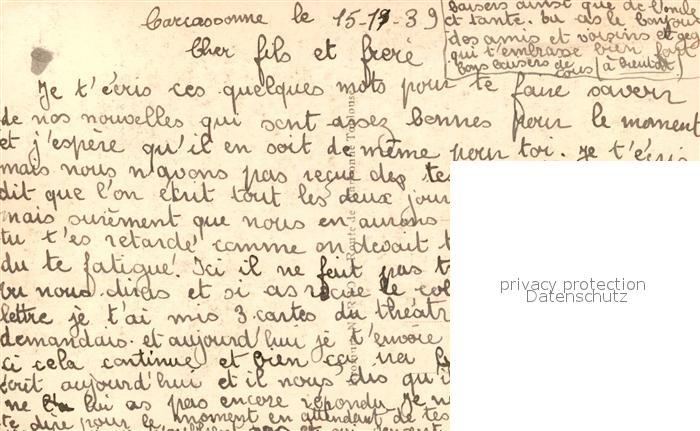 Carcassonne le 15-11-39
Cher fils et frere
Je t'écris ces quelques mots pour te faire savoir
de nos nouvelles qui sont assez bonnes pour le moment
et j'espère qu'il en soit de même pour toi. Je t'écris
mais nous n'avons pas reçue des tes
dit que l'on écrit tout les deux jour
mais surèment que nous en aurons
tu t'es retardé comme on devait t
du te fatigué. Ici il ne fait pas t
tu nous diras et si as reçue le col
lettre je t'ai mis 3 cartes du théatr
demandais. et aujourd'hui je t'envoie
ci cela continue et bien ça va
écrit aujourd'hui et il nous dis qu'il
ne lui as pas encore répondu Je n
te dire pour le moment en attendant de tes
baisers ainsi que de l'oncle
et tante. tu as le bonjour
des amis et voisins et
qui t'embrasse bien fort
bons baisers de
tous (à bientôt)
privacy protection
Datenschutz